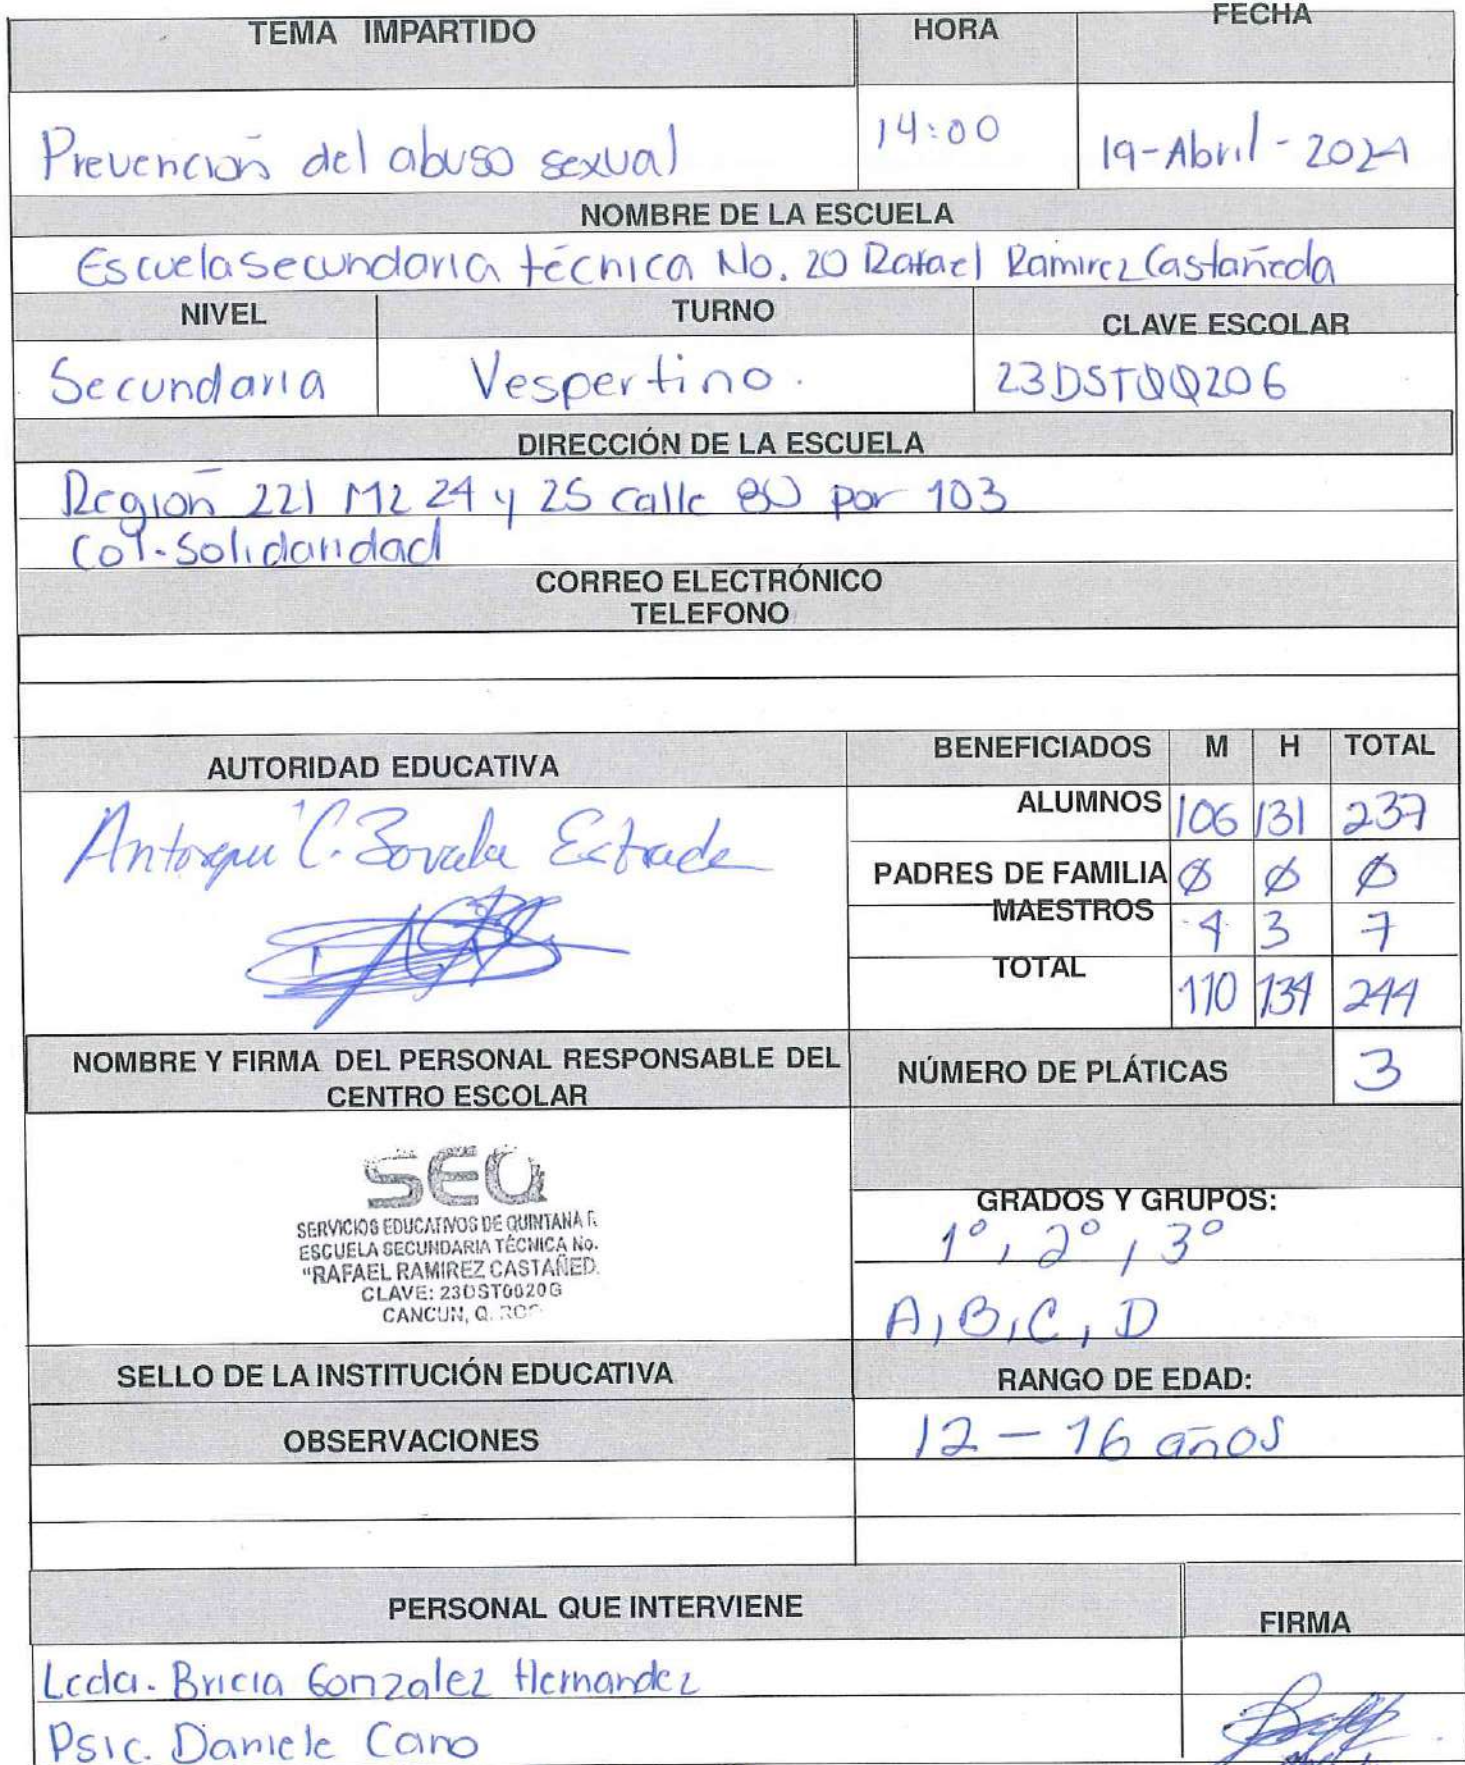 TEMA IMPARTIDO HORA FECHA
Prevención del abuso sexual 14:00 19-Abril-2024
NOMBRE DE LA ESCUELA
Escuela Secundaria técnica No. 20 Rafael Ramirez Castañeda
NIVEL TURNO CLAVE ESCOLAR
Secundaria Vespertino. 23DST0020G
DIRECCIÓN DE LA ESCUELA
Región 221 Mz 24 y 25 calle 80 por 103
Col. Solidaridad
CORREO ELECTRÓNICO
TELEFONO
AUTORIDAD EDUCATIVA BENEFICIADOS M H TOTAL
ALUMNOS 106 131 237
C. Estrada
PADRES DE FAMILIA 0 0 0
MAESTROS 4 3 7
TOTAL 110 134 244
NOMBRE Y FIRMA DEL PERSONAL RESPONSABLE DEL
CENTRO ESCOLAR
NÚMERO DE PLÁTICAS 3
SEQ
SERVICIOS EDUCATIVOS DE QUINTANA R
ESCUELA SECUNDARIA TÉCNICA No.
"RAFAEL RAMIREZ CASTAÑED
CLAVE: 23DST0020G
CANCUN, Q. ROO
GRADOS Y GRUPOS:
1°, 2°, 3°
A, B, C, D
SELLO DE LA INSTITUCIÓN EDUCATIVA RANGO DE EDAD:
OBSERVACIONES 12 - 16 años
PERSONAL QUE INTERVIENE FIRMA
Lcda. Bricia Gonzalez Hernandez
Psic. Daniele Cano